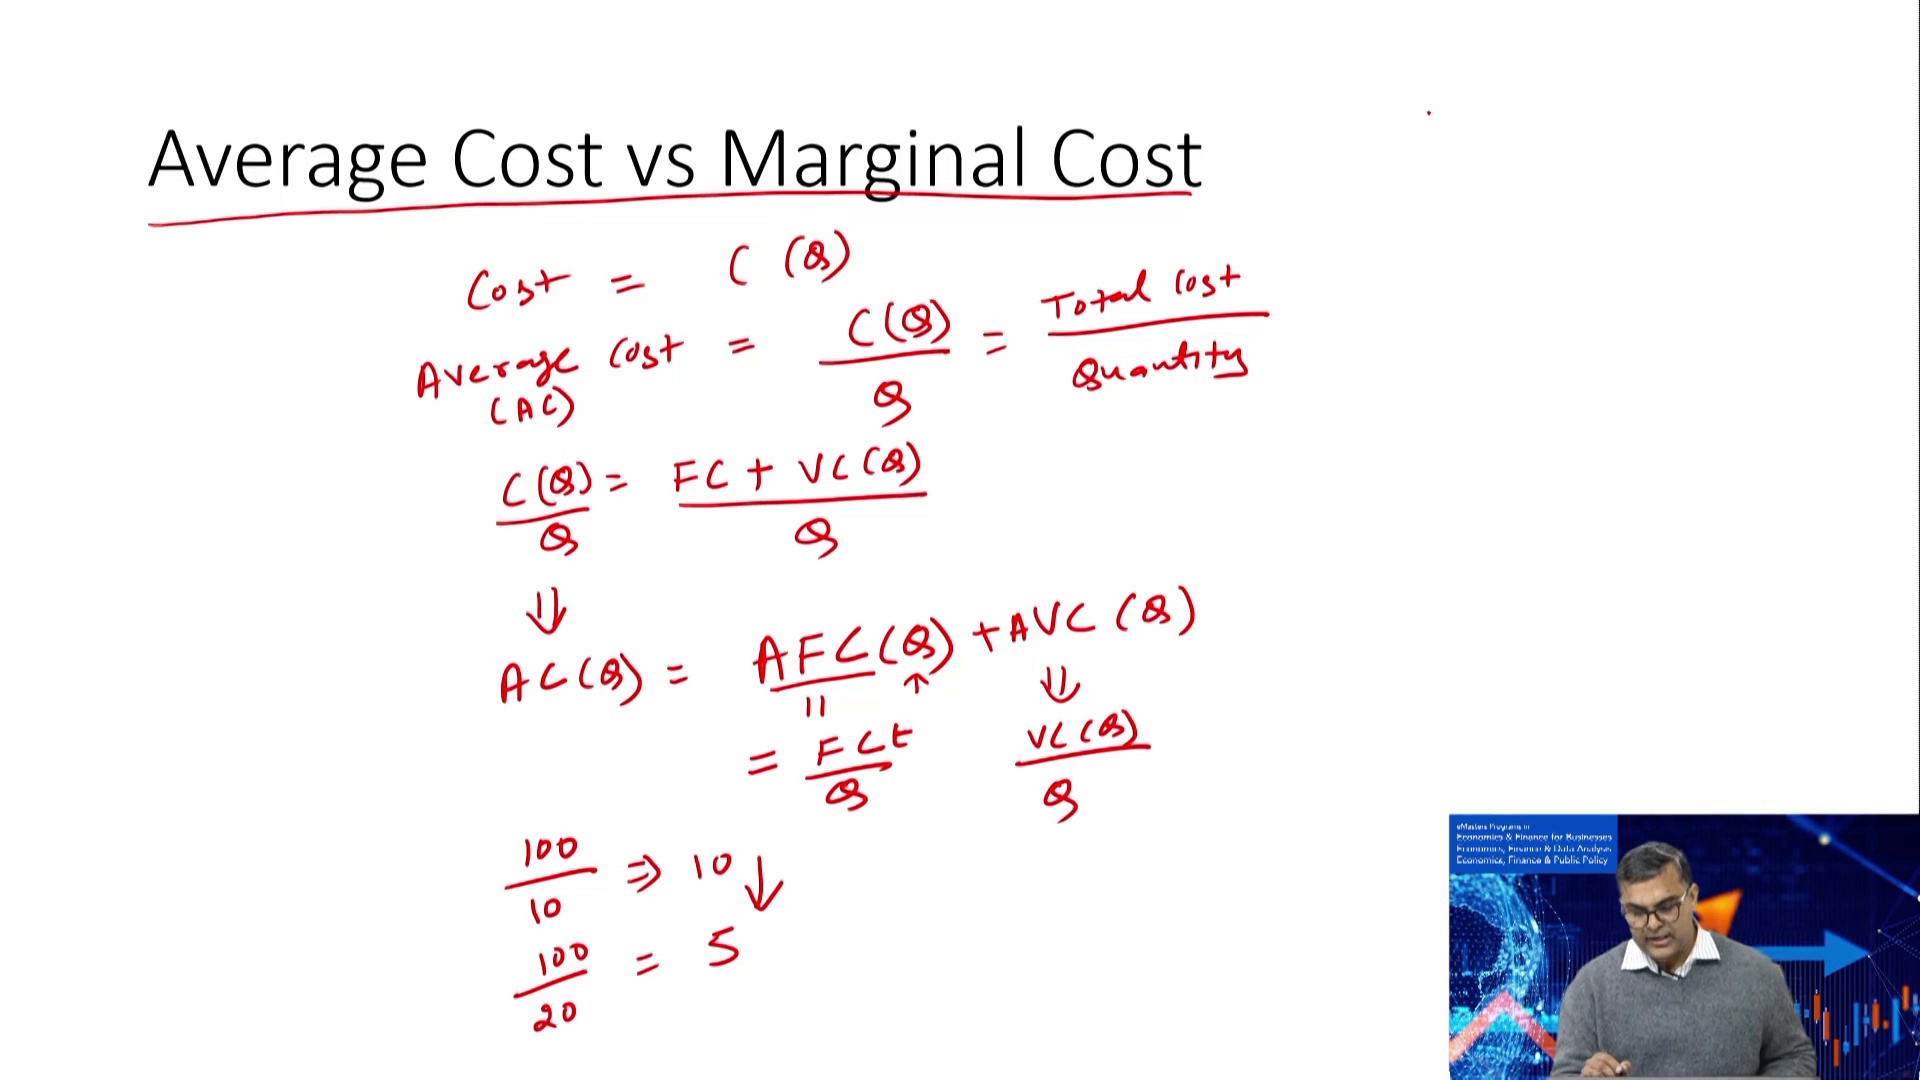 Average Cost vs Marginal Cost
Cost = C (Q)
Average Cost = C(Q) / Q = Total Cost / Quantity
(AC)
C(Q) / Q = FC + VC(Q) / Q
⇓
AC(Q) = AFC(Q) + AVC(Q)
|| ↑ ⇓
= FC / Q VC(Q) / Q
100 / 10 ⇒ 10 ↓
100 / 20 = 5
eMasters Programs in
Economics & Finance for Businesses
Economics, Finance & Data Analysis
Economics, Finance & Public Policy